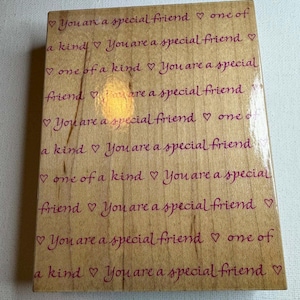 ♡ You are a special friend ♡ one of
a kind ♡ You are a special friend ♡
♡ one of a kind ♡ You are a special
friend ♡ You are a special friend
♡ You are a special friend ♡ one of
a kind ♡ You are a special friend
♡ one of a kind ♡ You are a special
friend ♡ You are a special friend ♡
♡ You are a special friend ♡ one of
a kind ♡ You are a special friend ♡